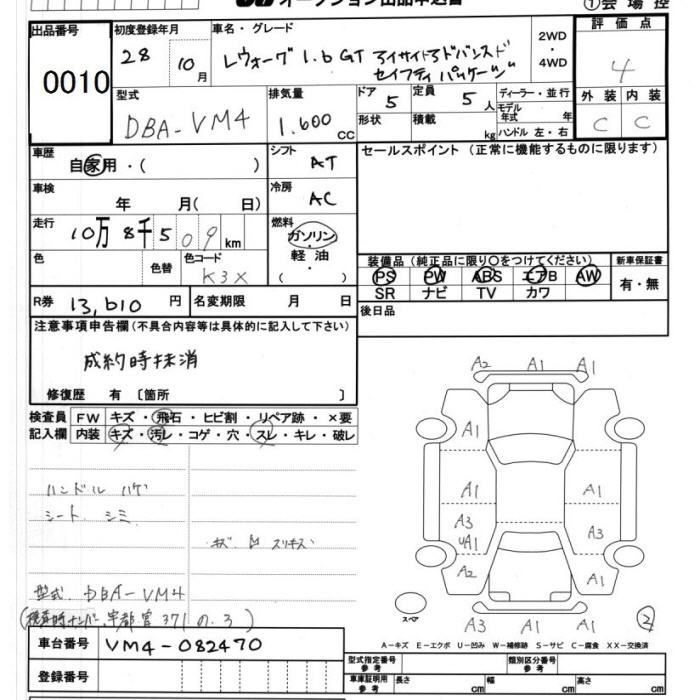 オークション出品申込書
①会場控
出品番号
0010
初度登録年月
28 10月
車名・グレード
レヴォーグ 1.6GT アイサイトアドバンスド
セイフティ パッケージ
2WD
・
4WD
評価点
4
外装 内装
C C
型式
DBA-VM4
排気量
1.600 cc
ドア
5
定員
5人
形状
積載
kg
ディーラー・並行
モデル
年式 年
ハンドル 左・右
車歴
自家用・( )
シフト
AT
セールスポイント (正常に機能するものに限ります)
車検
年 月( 日)
冷房
AC
走行
10万 8千 5 0 9 km
燃料
ガソリン・
軽油・
( )
色
色替
色コード
K3X
装備品(純正品に限り○をつけてください)
PS PW ABS エアB AW
SR ナビ TV カワ
新車保証書
有・無
R券 13,610 円
名変期限 月 日
後日品
注意事項申告欄(不具合内容等は具体的に記入して下さい)
成約時抹消
修復歴 有 〔箇所 〕
検査員
記入欄
FW キズ・飛石・ヒビ割・リペア跡・×要
内装 キズ・汚レ・コゲ・穴・スレ・キレ・破レ
ハンドル ハゲ
シート シミ
キズ スリキズ
型式 DBA-VM4
(検査時ナンバー 宇都宮 371 の 3)
車台番号 VM4-082470
登録番号
A2 A1 A1
A1
A1 A1
A3 A3
UA1
A2 A1
スペア
A3 A1 A1
②
A-キズ E-エクボ U-凹み W-補修跡 S-サビ C-腐食 XX-交換済
型式指定番号
参考
類別区分番号
参考
車庫証明用
参考
長さ cm 幅 cm 高さ cm